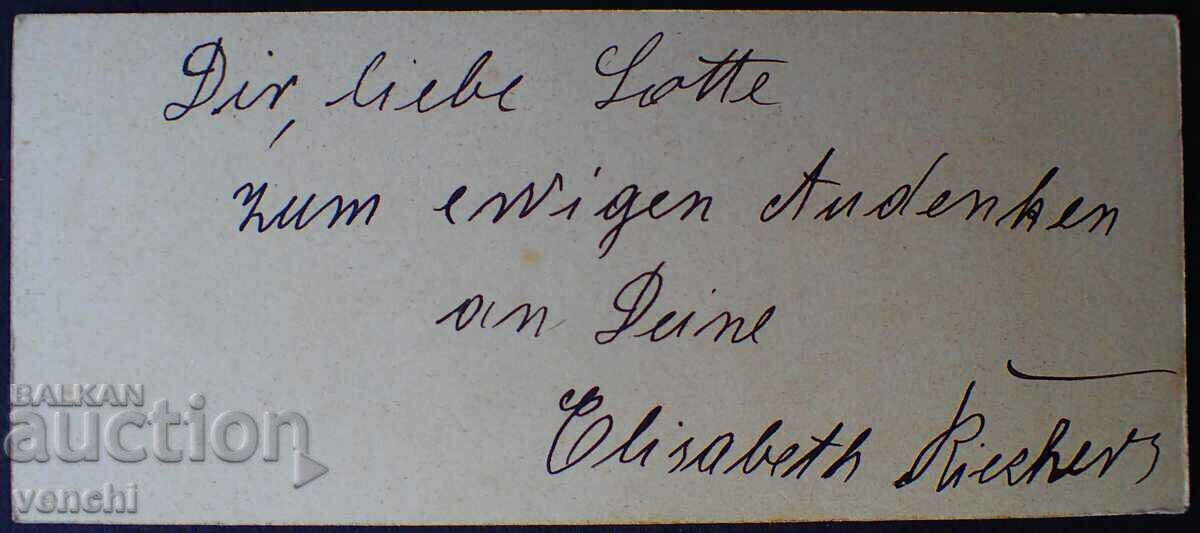 Dir, liebe Lotte
zum ewigen Andenken
an Deine
Elisabeth
BALKAN
auction
venchi